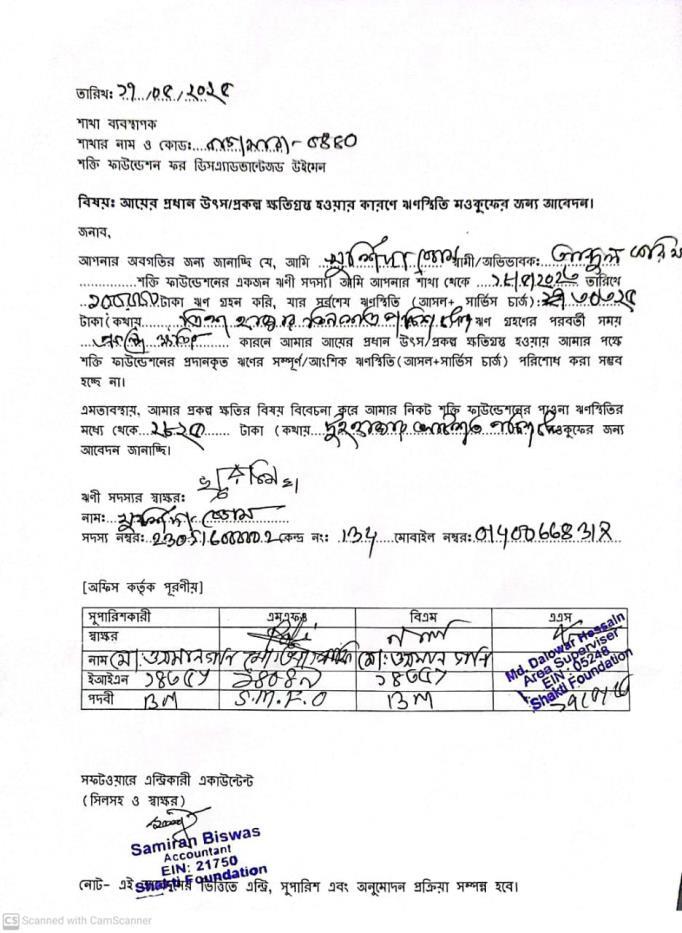 তারিখ: ২৭/০৫/২০২৫
শাখা ব্যবস্থাপক
শাখার নাম ও কোড: - ০৪৪০
শক্তি ফাউন্ডেশন ফর ডিসএ্যাডভান্টেজড উইমেন
বিষয়: আয়ের প্রধান উৎস/প্রকল্প ক্ষতিগ্রস্থ হওয়ার কারণে ঋণস্থিতি মওকুফের জন্য আবেদন।
জনাব,
আপনার অবগতির জন্য জানাচ্ছি যে, আমি মুর্শিদা বেগম স্বামী/অভিভাবক:
শক্তি ফাউন্ডেশনের একজন ঋণী সদস্য। আমি আপনার শাখা থেকে তারিখে
টাকা ঋণ গ্রহন করি, যার সর্বশেষ ঋণস্থিতি (আসল+ সার্ভিস চার্জ): ৩০৩২৫
টাকা (কথায় ত্রিশ হাজার তিনশত পঁচিশ ঋণ গ্রহণের পরবর্তী সময়
কারনে আমার আয়ের প্রধান উৎস/প্রকল্প ক্ষতিগ্রস্থ হওয়ায় আমার পক্ষে
শক্তি ফাউন্ডেশনের প্রদানকৃত ঋণের সম্পূর্ণ/আংশিক ঋণস্থিতি (আসল+সার্ভিস চার্জ) পরিশোধ করা সম্ভব
হচ্ছে না।
এমতাবস্থায়, আমার প্রকল্প ক্ষতির বিষয় বিবেচনা করে আমার নিকট শক্তি ফাউন্ডেশনের পাওনা ঋণস্থিতির
মধ্যে থেকে ২৮২৫ টাকা (কথায় দুই হাজার আটশত পঁচিশ মওকুফের জন্য
আবেদন জানাচ্ছি।
ঋণী সদস্যর স্বাক্ষর:
নাম: মুর্শিদা বেগম
সদস্য নম্বর: কেন্দ্র নং: 134 মোবাইল নম্বর:
[অফিস কর্তৃক পূরণীয়]
সুপারিশকারী এমএফও বিএম এএস
স্বাক্ষর
নাম মো: ওসমান গনি মো: ওসমান গনি
ইআইএন
পদবী BM S.M.F.O BM
Md. Dalowar Hossain
Area Superviser
EIN: 05248
Shakti Foundation
সফটওয়ারে এন্ট্রিকারী একাউন্টেন্ট
(সিলসহ ও স্বাক্ষর)
Samiran Biswas
Accountant
EIN: 21750
Shakti Foundation
নোট- এই ভিত্তিতে এন্ট্রি, সুপারিশ এবং অনুমোদন প্রক্রিয়া সম্পন্ন হবে।
CS Scanned with CamScanner